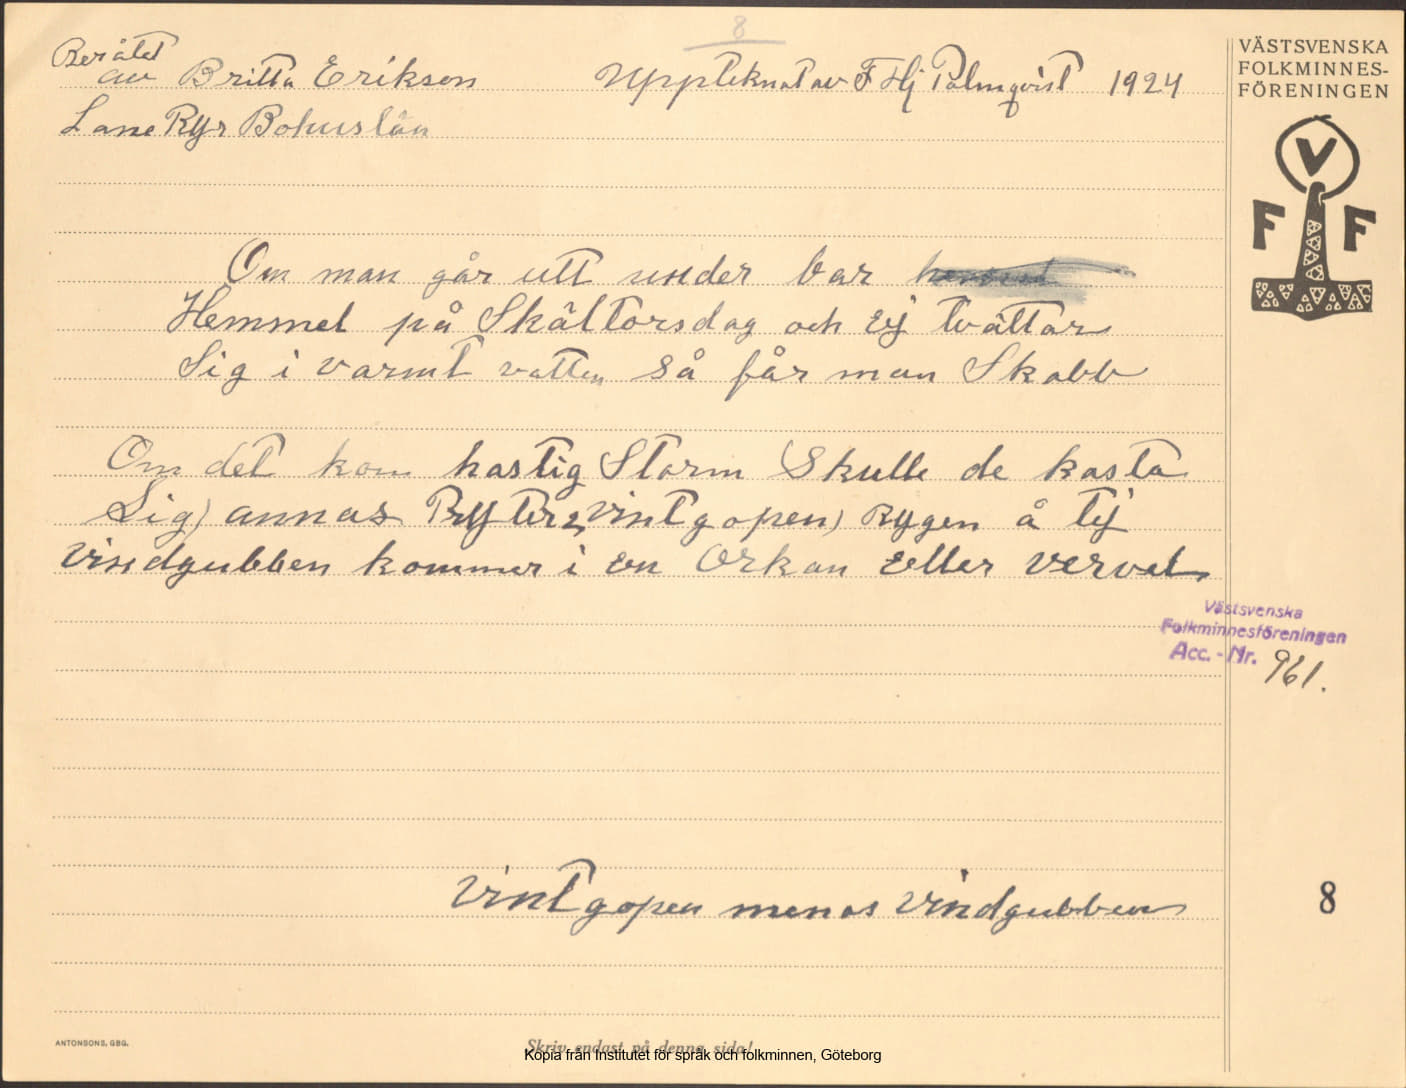 8
Berätat
av Britta Erikson Uppteknat av F Hj Palmqvist 1924
Lane Ryr Bohuslän
VÄSTSVENSKA
FOLKMINNES-
FÖRENINGEN
V
F F
Om man går utt under bar
Hemmel på Skältorsdag och ej tvättar
Sig i varmt vatten så får man Skabb
Om det kom hastig Storm Skulle de kasta
Sig) annas Bryter vintgopen) Rygen å tej
Vindgubben kommer i en Orkan eller vervel
Västsvenska
Folkminnesföreningen
Acc. - Nr. 961.
Vintgopen menas Vindgubben
8
ANTONSONS, GBG.
Skriv endast på denna sida!
Kopia från Institutet för språk och folkminnen, Göteborg